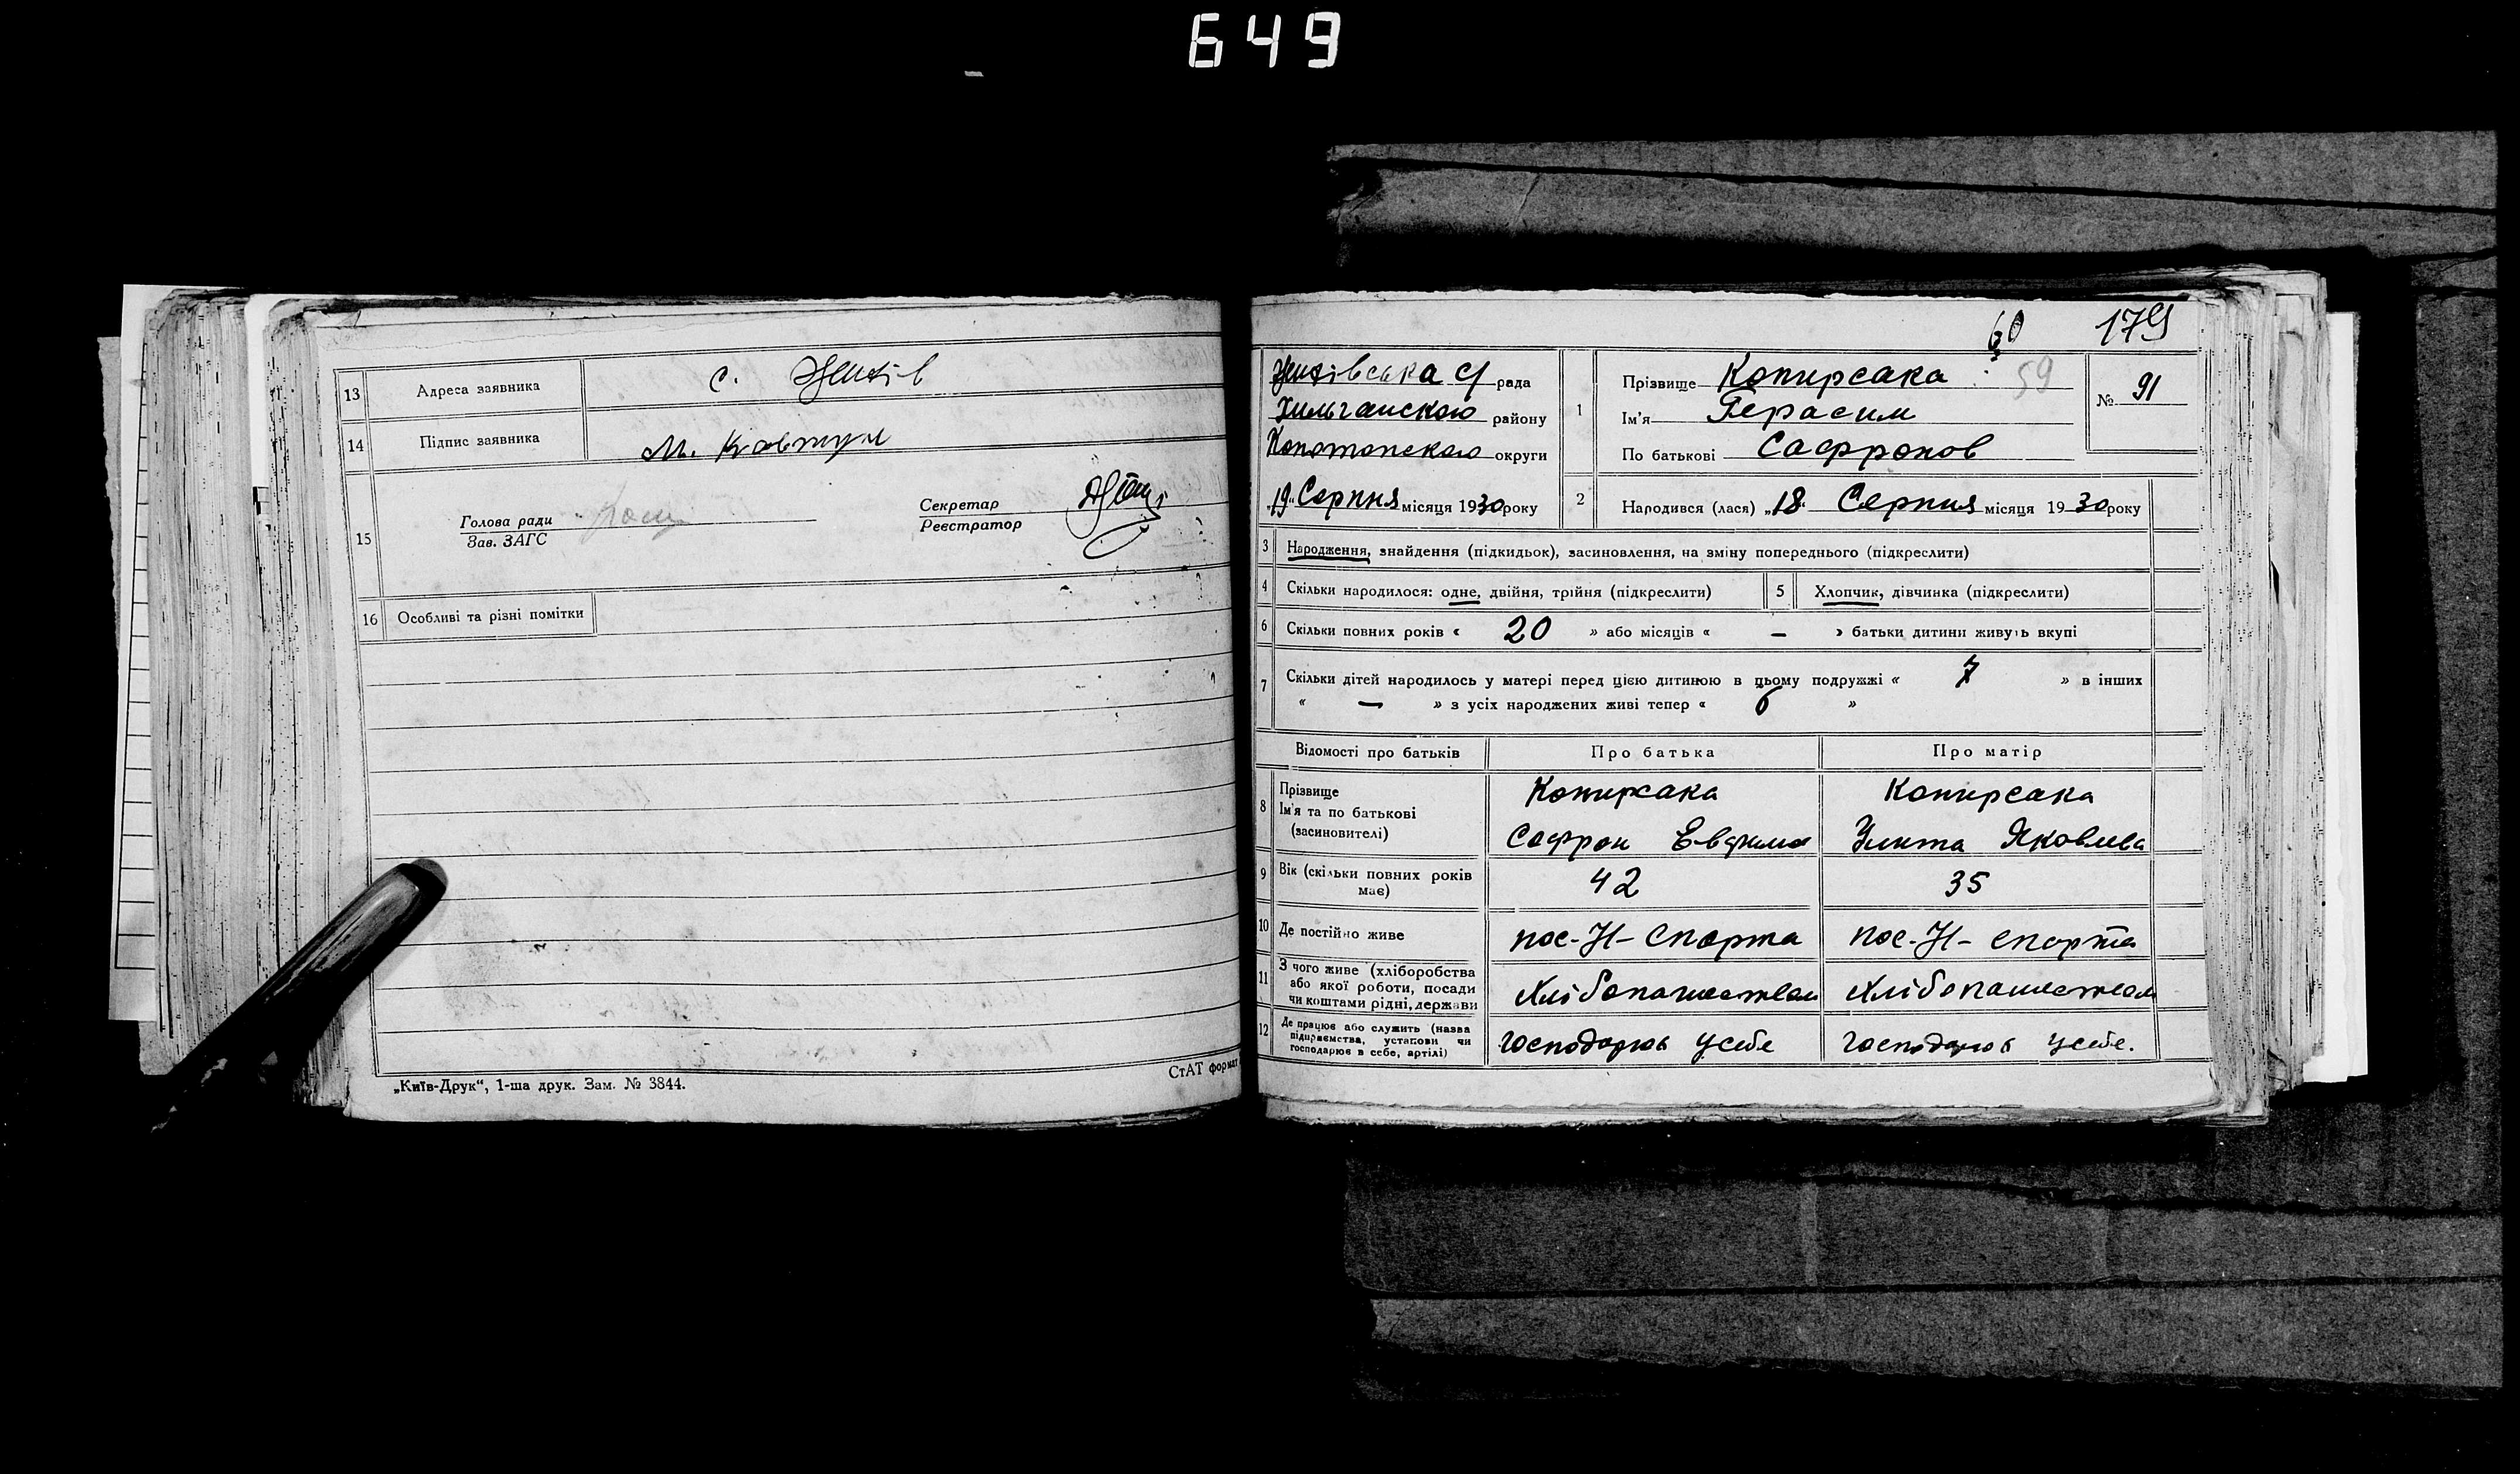 649
13 Адреса заявника с. Житів
14 Підпис заявника М. Ковтун
15 Голова ради
Зав. ЗАГС
Секретар
Реєстратор
16 Особливі та різні помітки
„Київ-Друк“, 1-ша друк. Зам. № 3844.
СтАТ формат
60 179
59
рада
району
Конотопскою округи
„19“ Серпня місяця 1930 року
1 Прізвище Копирсака
Ім'я Герасим
По батькові Сафронов
№ 91
2 Народився (лася) „18“ Серпня місяця 1930 року
3 Народження, знайдення (підкидьок), засиновлення, на зміну попереднього (підкреслити)
4 Скільки народилося: одне, двійня, трійня (підкреслити) 5 Хлопчик, дівчинка (підкреслити)
6 Скільки повних років « 20 » або місяців « — » батьки дитини живуть вкупі
7 Скільки дітей народилось у матері перед цією дитиною в цьому подружжі « 7 » в інших
« — » з усіх народжених живі тепер « 6 »
Відомості про батьків Про батька Про матір
8 Прізвище
Ім'я та по батькові
(засиновителі)
Копирсака
Сафрон Евфимов
Копирсака
Улита Яковлева
9 Вік (скільки повних років
має)
42 35
10 Де постійно живе пос-Н-Спарта пос-Н-спарта
11 З чого живе (хліборобства
або якої роботи, посади
чи коштами рідні, держави
Хлібопашеством Хлібопашеством
12 Де працює або служить (назва
підприємства, установи чи
господарює в себе, артілі)
господарює усебе господарює усебе.